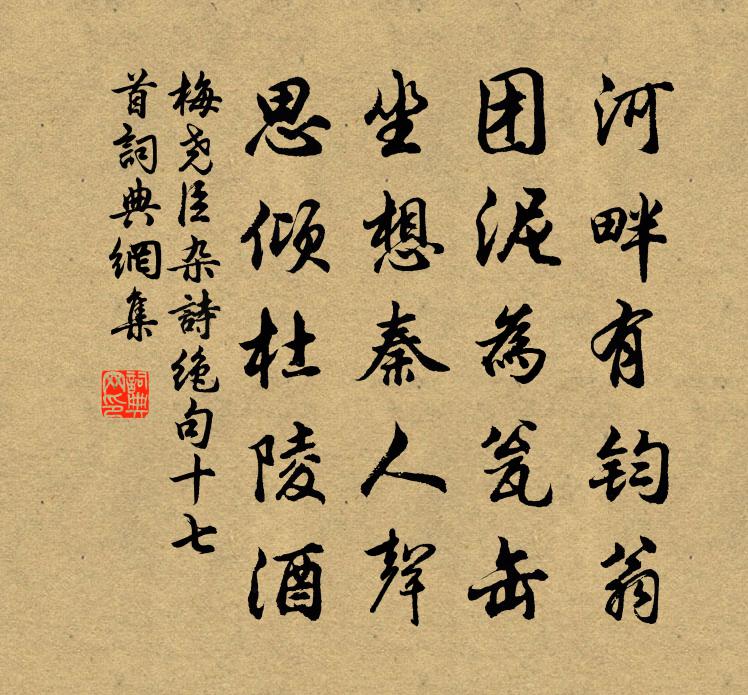 河畔有钧翁
团泥為瓮缶
坐想秦人聲
思倾杜陵酒
梅尧臣杂詩绝句十七
首詞典網集
詞典网印